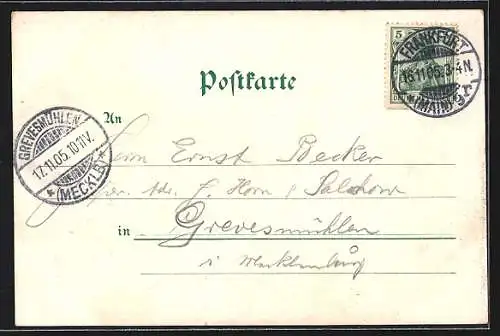 5
FRANKFURT
16.11.05.3-4N.
*(MAIN)9r
Postkarte
GREVESMÜHLEN
17.11.05.10-11V.
* (MECKLB) *
An
Herrn Ernst Becker
J. Horn & Salchow
in Grevesmühlen
i Mecklenburg